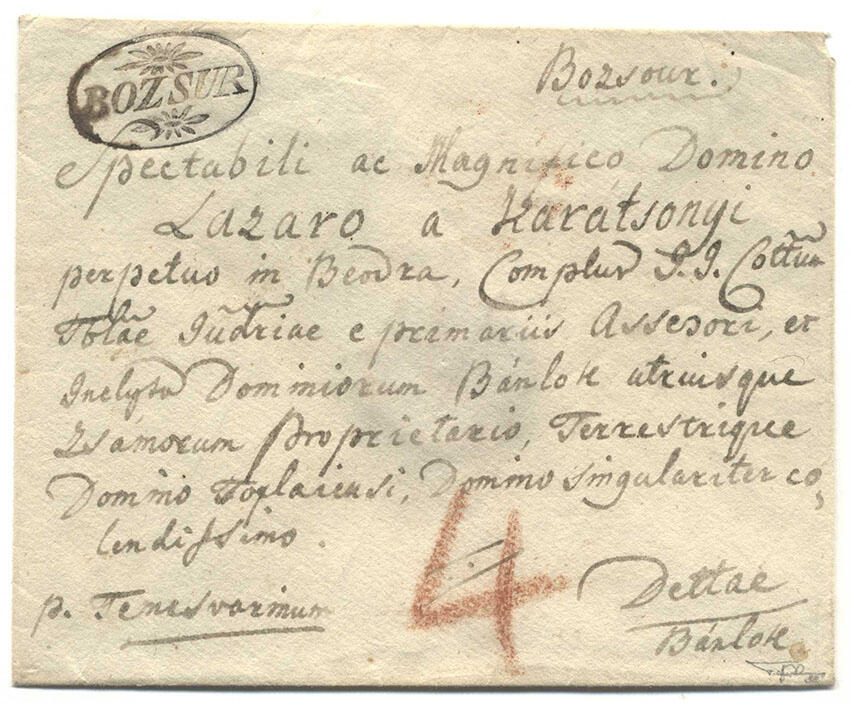 BOZSUR
Bozsour.
Spectabili ac Magnifico Domino
Lazaro a Karátsonyi
perpetuo in Beodra, Complur I. I. Cottūū
Tblae Iūdriae e primariis Assesori, et
Inclytor Dominiorum Bánlok utriusque
Zsámorum Proprietario, Terrestrique
Domino Toplaiensi, Domino singulariter co,
lendissimo.
p. Temesvarinum
4
Dettae
Bánlok